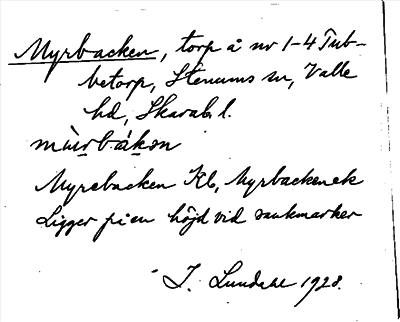 Myrbacken, torp å nr 1-4 Tub-
betorp, Stenums sn, Valle
hd, Skarab. l.
mùrbákən
Myrebacken Kb, Myrbacken ek
Ligger på en höjd vid sankmarker
J. Lundahl 1928.